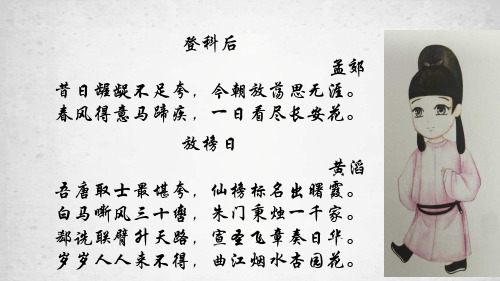 登科后
孟郊
昔日龌龊不足夸，今朝放荡思无涯。
春风得意马蹄疾，一日看尽长安花。
放榜日
黄滔
吾唐取士最堪夸，仙榜标名出曙霞。
白马嘶风三十辔，朱门秉烛一千家。
郄诜联臂升天路，宣圣飞章奏日华。
岁岁人人来不得，曲江烟水杏园花。